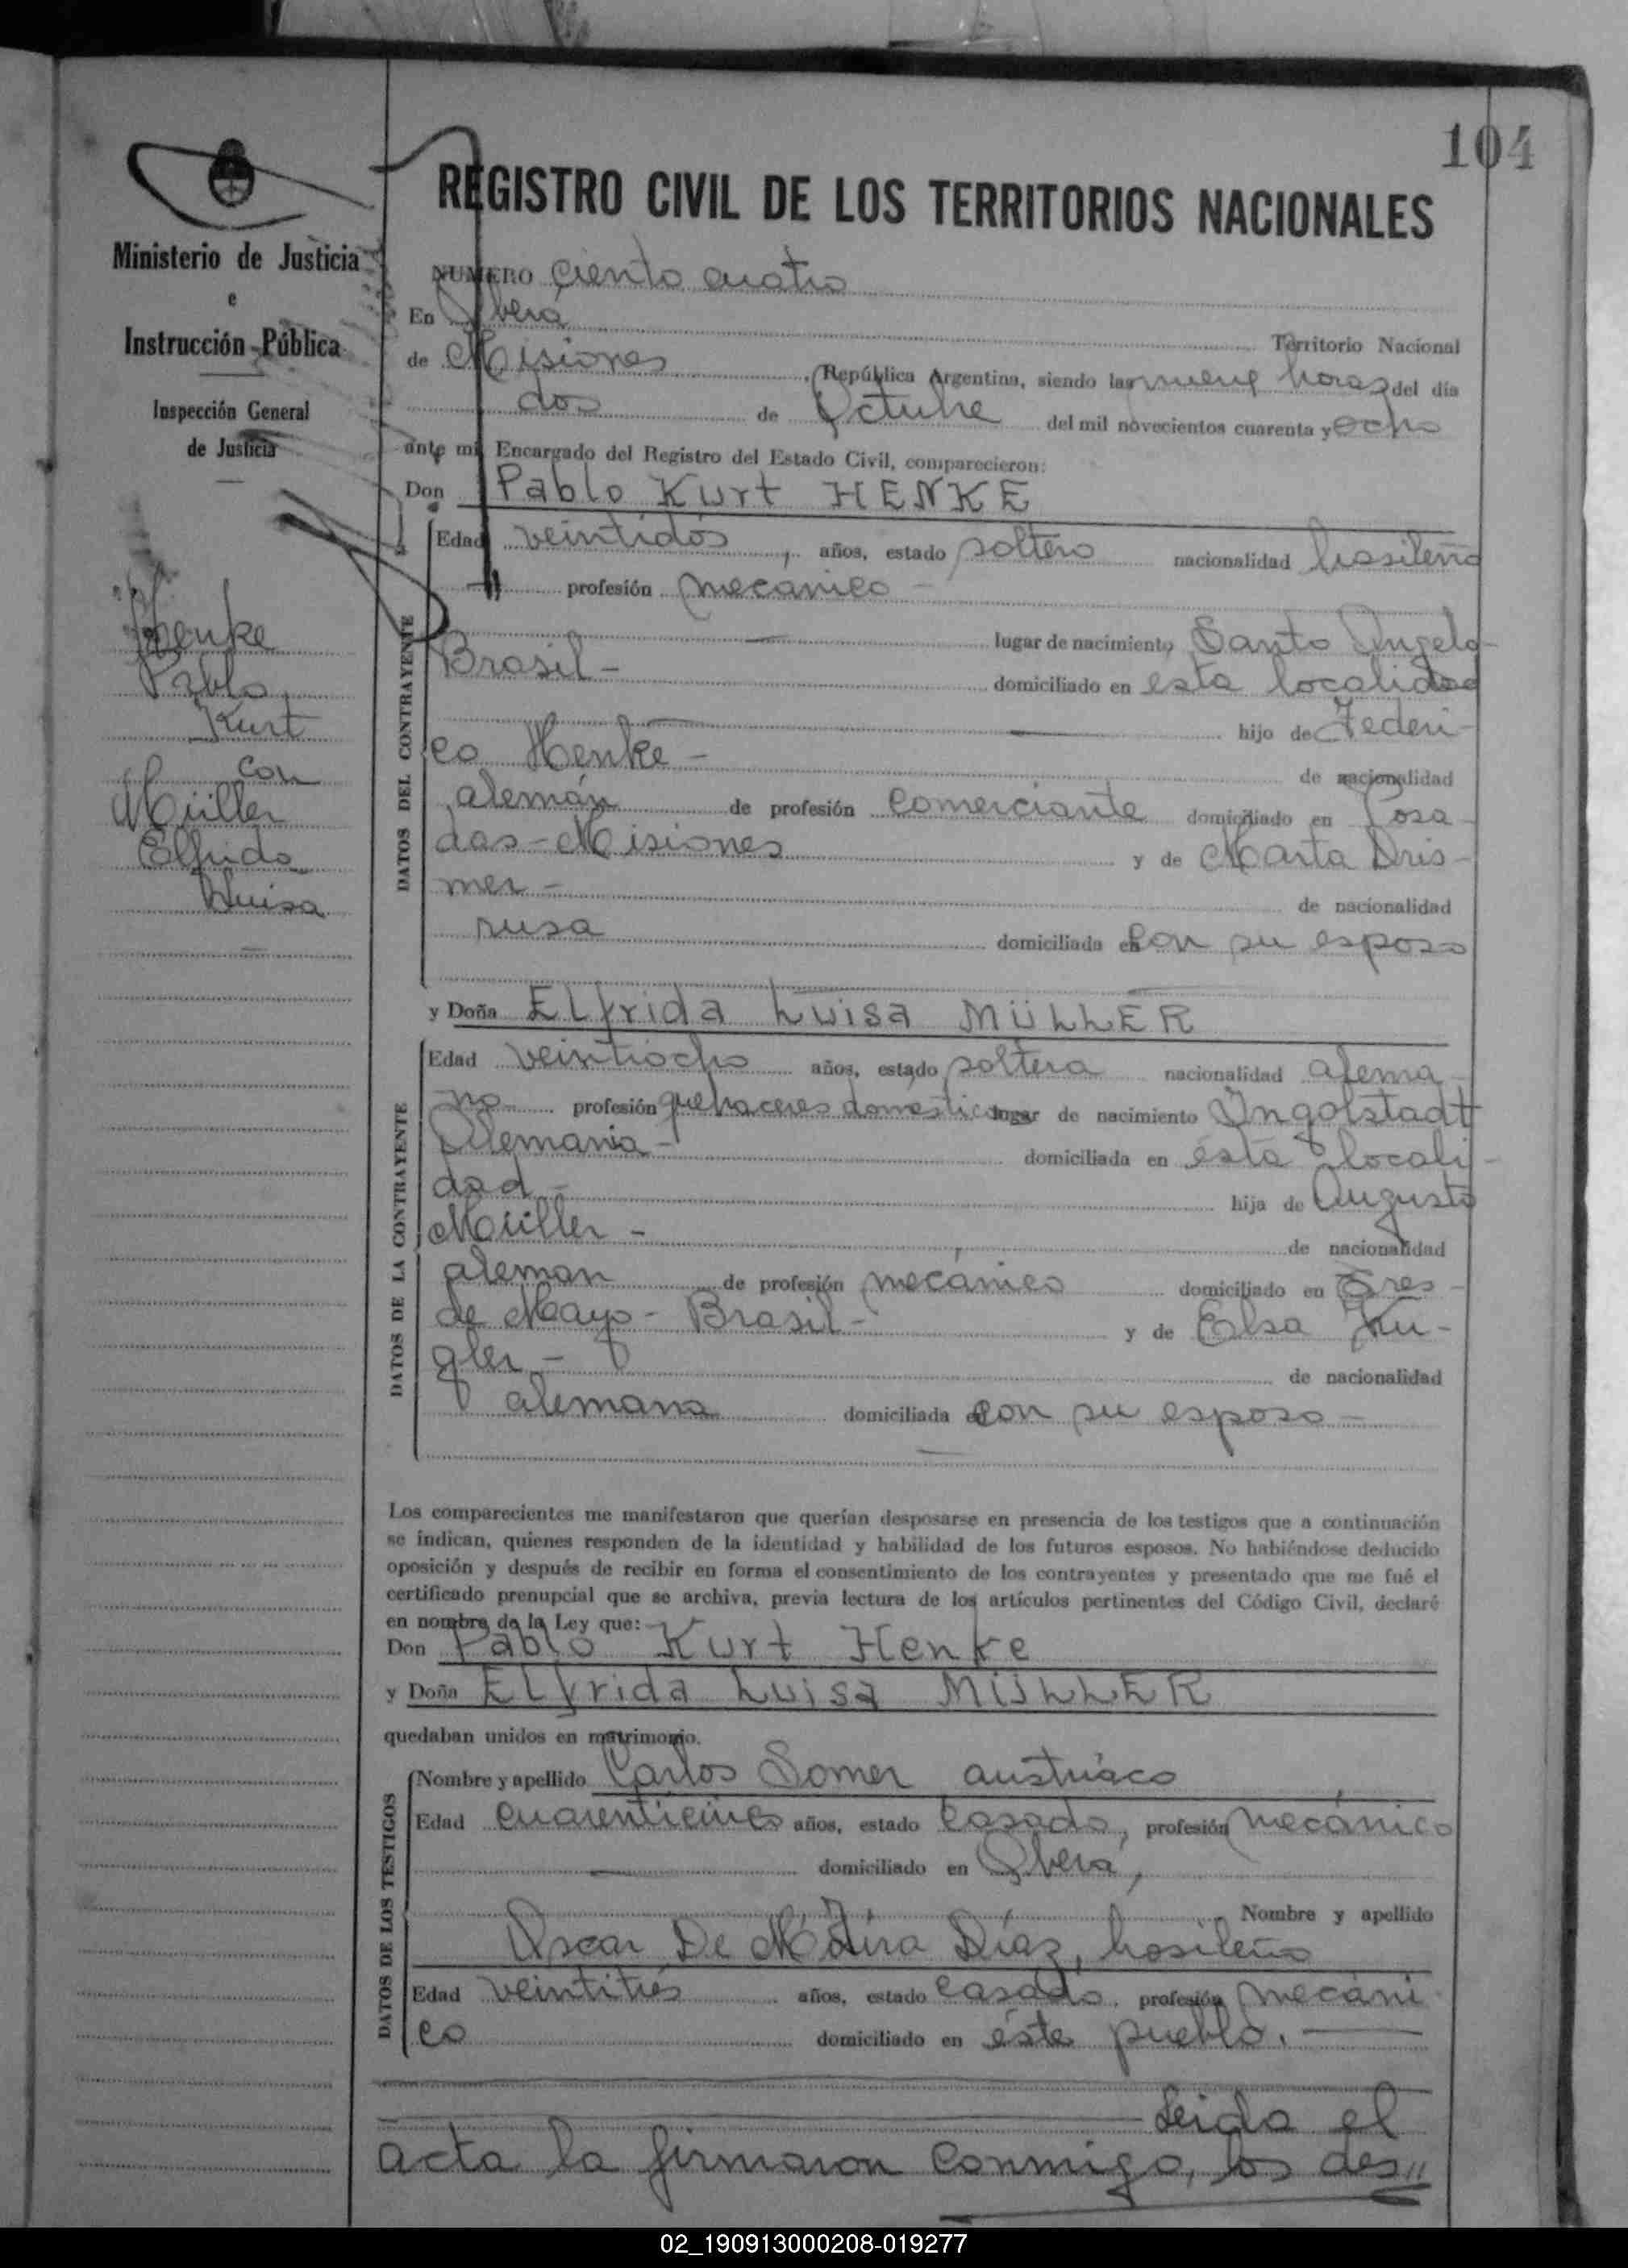 104
REGISTRO CIVIL DE LOS TERRITORIOS NACIONALES
Ministerio de Justicia
e
Instrucción Pública
Inspección General
de Justicia
Henke
Pablo
Kurt
con
Müller
Elfrida
Luisa
NUMERO ciento cuatro
En Oberá Territorio Nacional
de Misiones República Argentina, siendo las nueve horas del día
dos de Octubre del mil novecientos cuarenta y ocho
ante mí Encargado del Registro del Estado Civil, comparecieron:
Don Pablo Kurt HENKE
DATOS DEL CONTRAYENTE
Edad veintidós, años, estado soltero nacionalidad brasileña
profesión mecanico -
lugar de nacimiento Santo Angelo-
Brasil - domiciliado en esta localidad
hijo de Federi-
co Henke - de nacionalidad
alemán de profesión comerciante domiciliado en Posa-
das - Misiones y de Marta Dris-
mer - de nacionalidad
rusa domiciliada con su esposo
y Doña Elfrida Luisa MÜLLER
DATOS DE LA CONTRAYENTE
Edad veintiocho años, estado soltera nacionalidad alema
na profesión quehaceres domesticos lugar de nacimiento Ingolstadt
Alemania - domiciliada en esta locali-
dad - hija de Augusto
Müller - de nacionalidad
aleman de profesión mecánico domiciliado en Tres -
de Mayo - Brasil - y de Elsa Ku-
gler - de nacionalidad
alemana domiciliada con su esposo -
Los comparecientes me manifestaron que querían desposarse en presencia de los testigos que a continuación
se indican, quienes responden de la identidad y habilidad de los futuros esposos. No habiéndose deducido
oposición y después de recibir en forma el consentimiento de los contrayentes y presentado que me fué el
certificado prenupcial que se archiva, previa lectura de los artículos pertinentes del Código Civil, declaré
en nombre de la Ley que:
Don Pablo Kurt Henke
y Doña Elfrida Luisa MÜLLER
quedaban unidos en matrimonio.
DATOS DE LOS TESTIGOS
Nombre y apellido Carlos Somer austriaco
Edad años, estado casado, profesión mecánico
domiciliado en Oberá,
Nombre y apellido
Oscar De Díaz, brasileño
Edad veintitrés años, estado casado, profesión mecáni
co domiciliado en éste pueblo.
Leida el
acta la firmaron conmigo, los des,,
02_190913000208-019277